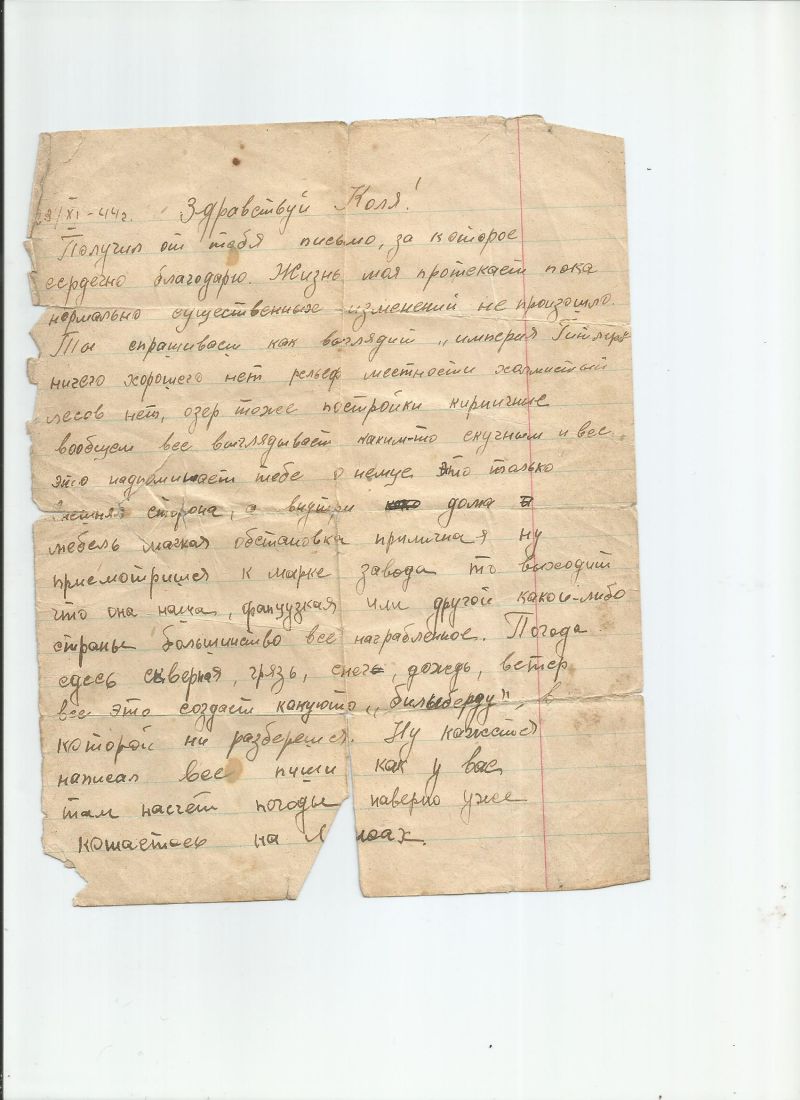 /XI-44г. Здравствуй Коля!
Получил от тебя письмо, за которое
сердечно благодарю. Жизнь моя протекает пока
нормально существенных изменений не произошло.
Ты спрашиваеш как выглядит „империя Гитлера"
ничего хорошего нет рельеф местности холмистый
лесов нет, озер тоже постройки кирпичные
вообщем все выглядывает каким-то скучным и все
это надпоминает тебе о немце это только
сторона, а внутри дома
мебель мягкая обстановка приличная ну
присмотришся к марке завода то выходит
что она наша, французкая или другой какой-либо
страны большинство все награбленное. Погода
здесь скверная, грязь, снег, дождь, ветер
все это создает какуюто „билыберду", в
которой ни разберешся. Ну кажется
написал все пиши как у вас
там насчет погоды наверно уже
катаетесь на